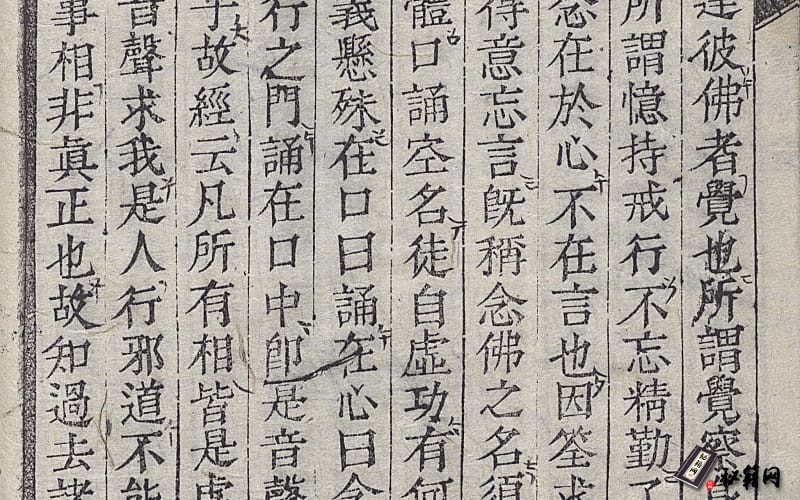 達彼佛者覺也所謂覺察
所謂憶持戒行不忘精勤了
念在於心不在言也因筌求
得意忘言旣稱念佛之名須
體口誦空名徒自虛功有何
義懸殊在口曰誦在心曰念
行之門誦在口中卽是音聲
乎故經云凡所有相皆是虛
音聲求我是人行邪道不能
事相非眞正也故知過去諸
秘籍网